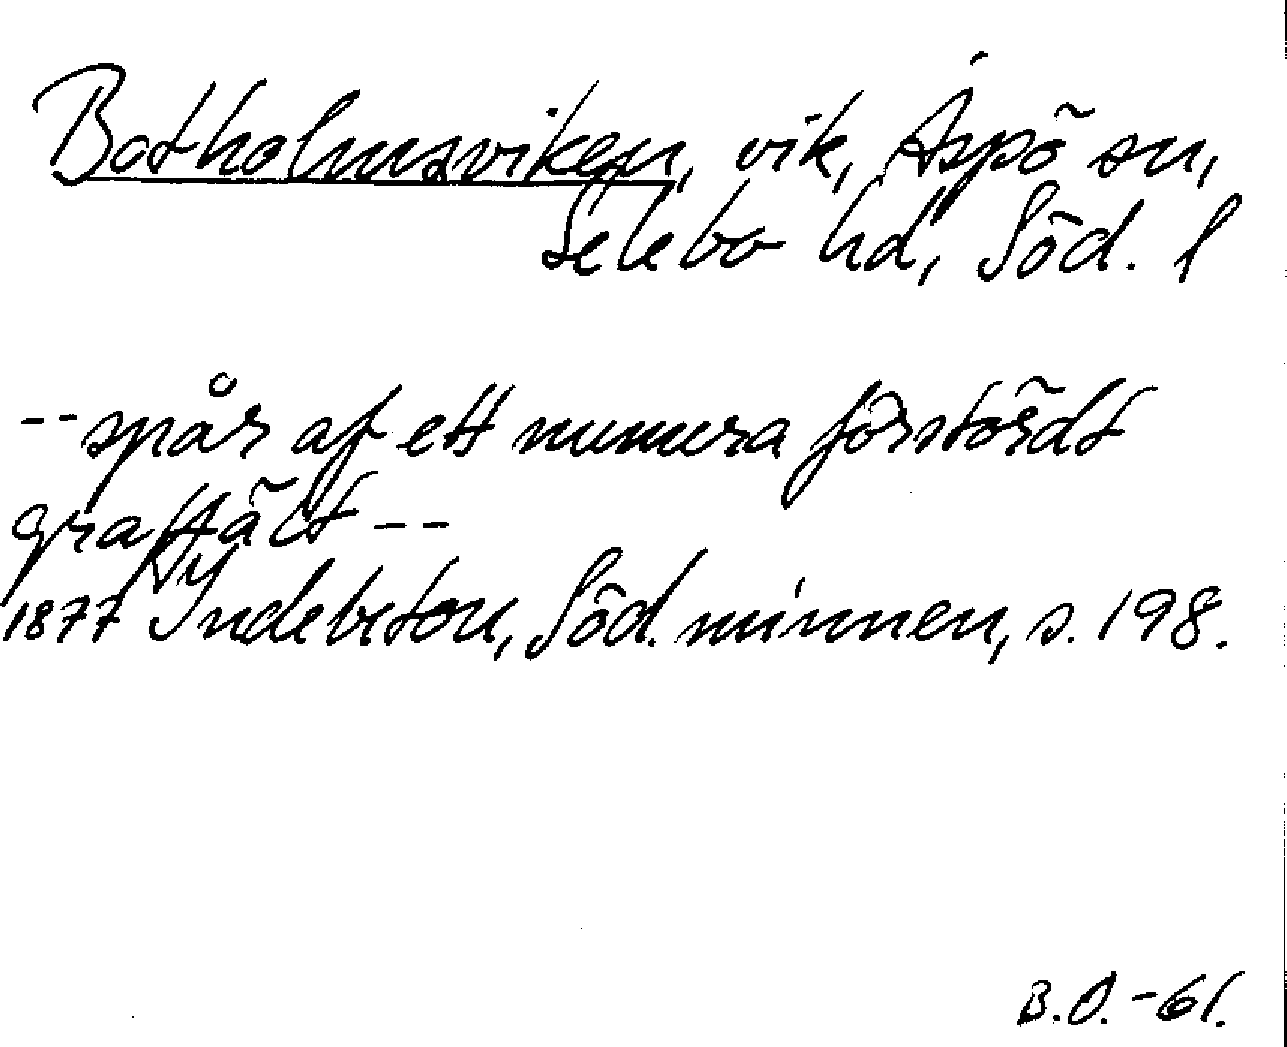 Botholmsviken, vik, Aspö sn,
Selebo hd, Söd. l
-- spår af ett numera förstördt
graffält --
1877 Y Indebetou, Söd. minnen, s. 198.
B.O. -61.